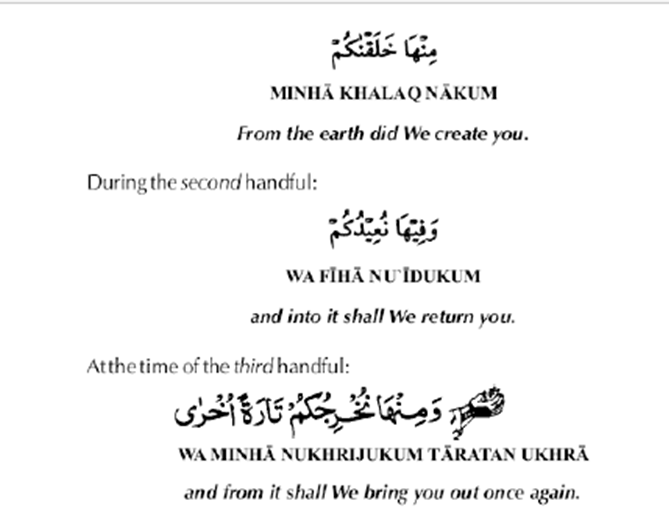 مِنْهَا خَلَقْنٰكُمْ
MINHĀ KHALAQ NĀKUM
From the earth did We create you.
During the second handful:
وَفِيْهَا نُعِيْدُكُمْ
WA FĪHĀ NU`ĪDUKUM
and into it shall We return you.
At the time of the third handful:
وَمِنْهَا نُخْرِجُكُمْ تَارَةً اُخْرٰى
WA MINHĀ NUKHRIJUKUM TĀRATAN UKHRĀ
and from it shall We bring you out once again.